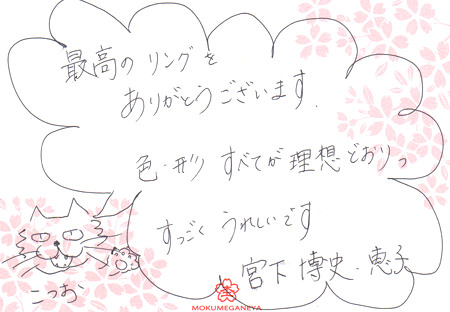 最高のリングを
ありがとうございます.
色・形 すべてが理想どおりっ
すっごく うれしいです
宮下 博史・恵子
こつお
MOKUMEGANEYA